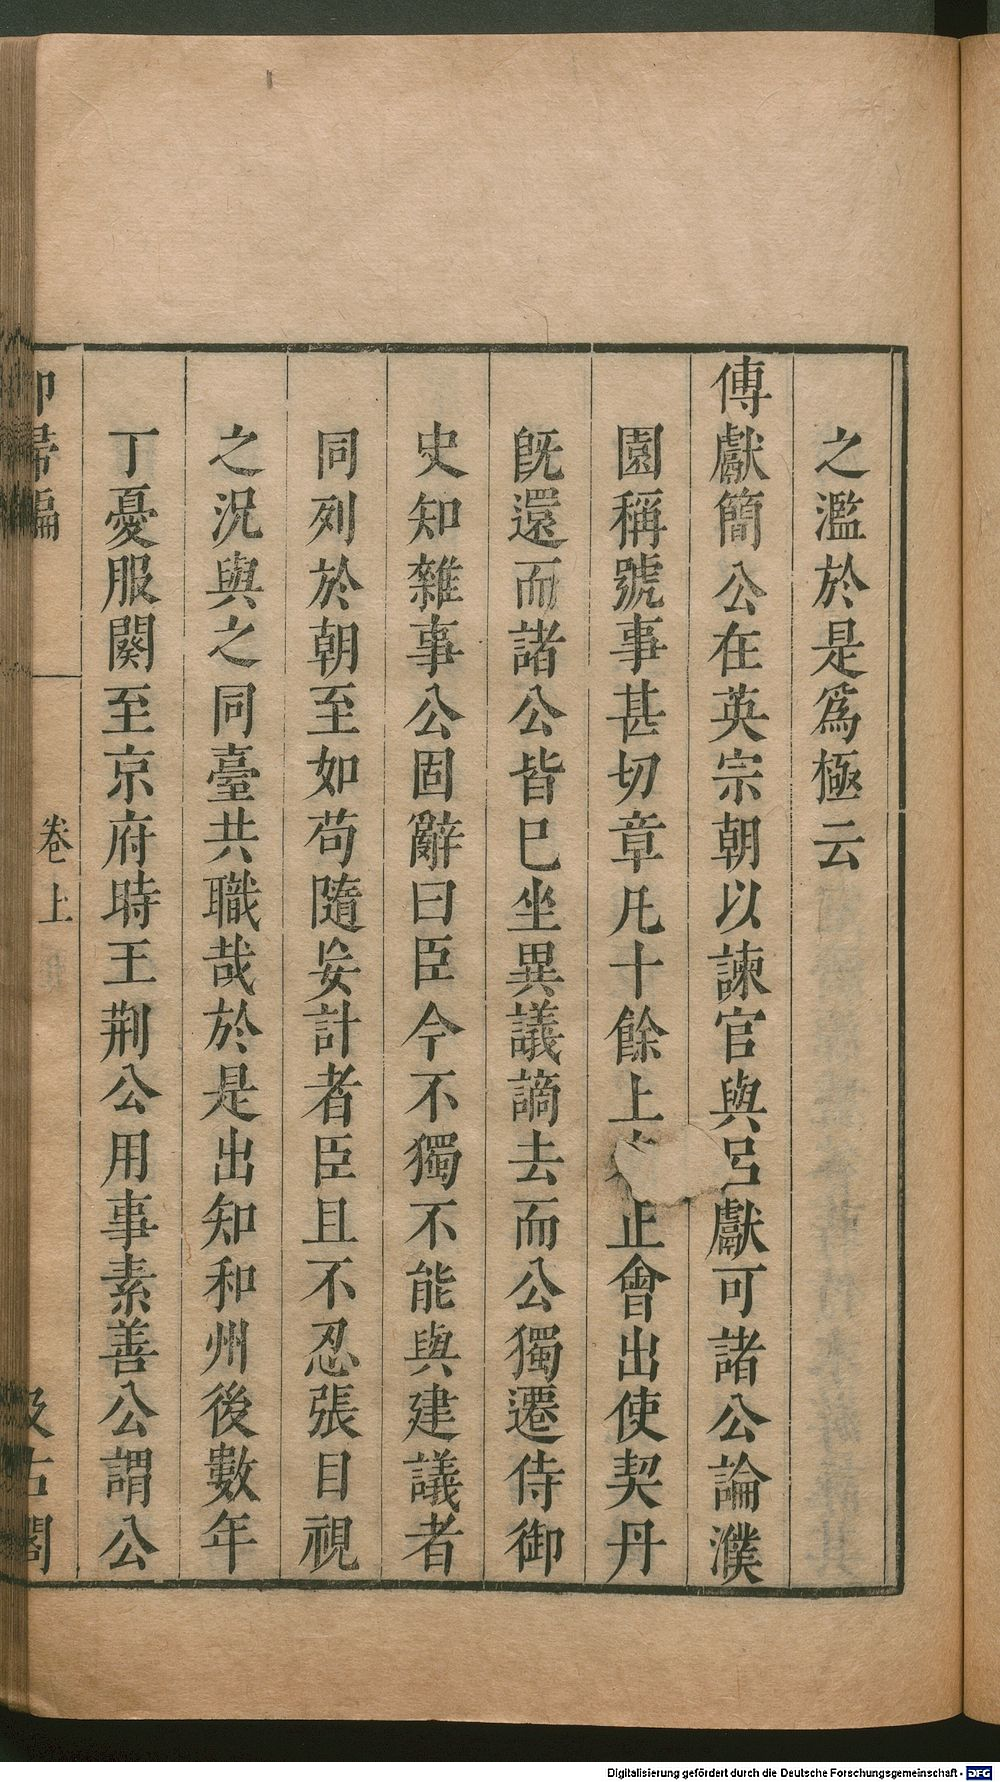 之濫於是爲極云
傅獻簡公在英宗朝以諫官與呂獻可諸公論濮
園稱號事甚切章凡十餘上止會出使契丹
旣還而諸公皆巳坐異議謫去而公獨遷侍御
史知雜事公固辭曰臣今不獨不能與建議者
同列於朝至如苟隨妄計者臣且不忍張目視
之況與之同臺共職哉於是出知和州後數年
丁憂服闋至京府時王荆公用事素善公謂公
卻掃編 卷上 汲古閣
Digitalisierung gefördert durch die Deutsche Forschungsgemeinschaft - DFG